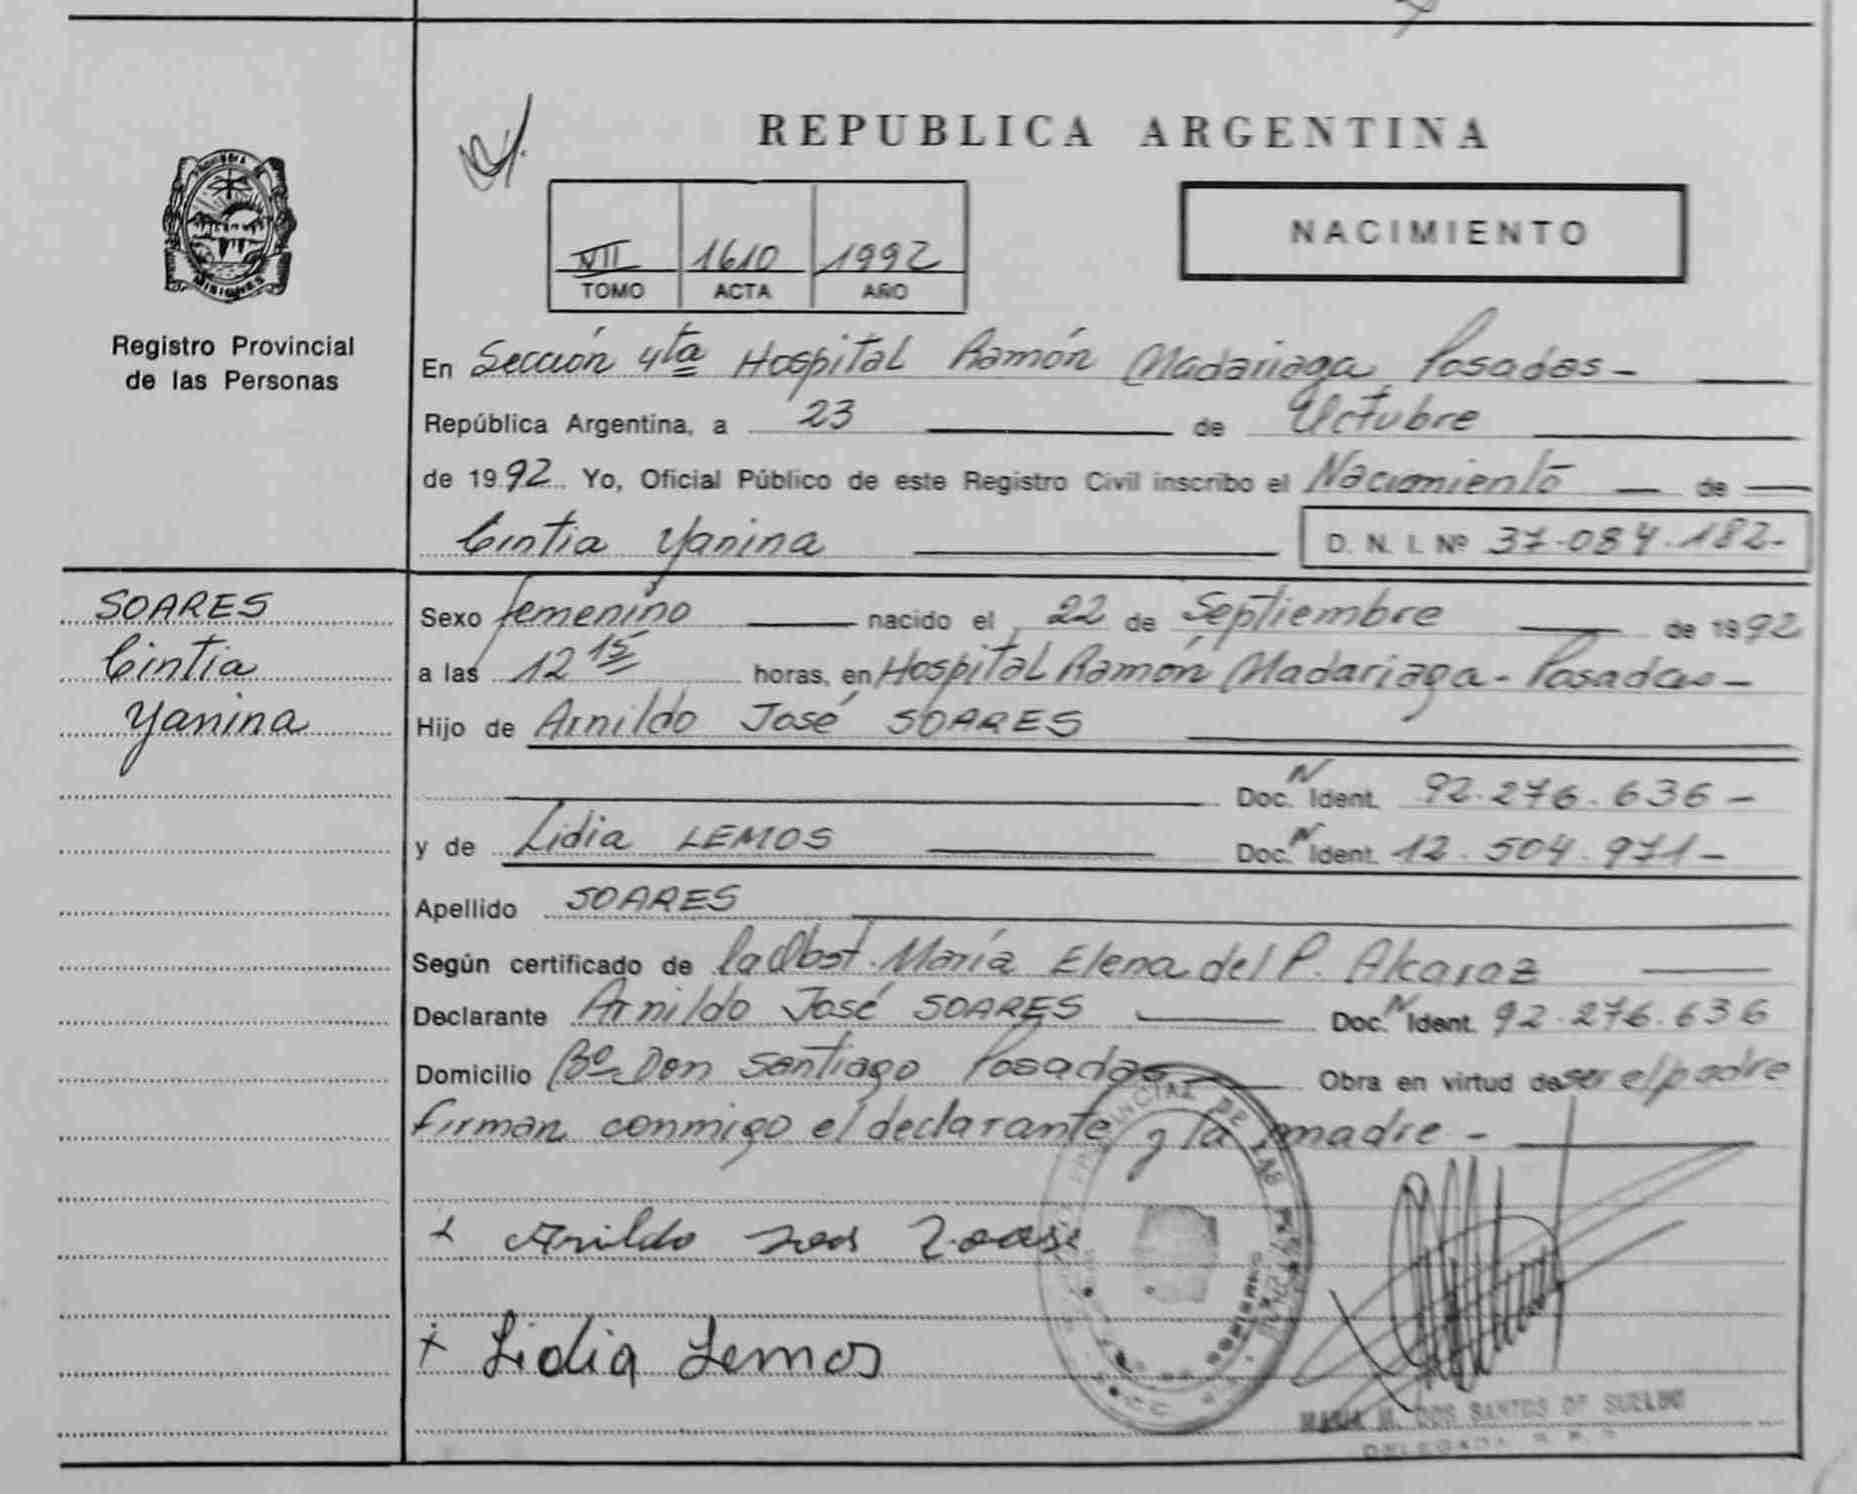 REPUBLICA ARGENTINA
NACIMIENTO
VII 1610 1992
TOMO ACTA AÑO
MISIONES
Registro Provincial
de las Personas
En Sección 4ta Hospital Ramón Madariaga Posadas -
República Argentina, a 23 de Octubre
de 1992 Yo, Oficial Público de este Registro Civil inscribo el Nacimiento de
Cintia Yanina D. N. I. Nº 37.084.182-
SOARES
Cintia
Yanina
Sexo femenino nacido el 22 de Septiembre de 1992
a las 12 15 horas, en Hospital Ramón Madariaga - Posadas -
Hijo de Arnildo José SOARES
Doc. N Ident. 92.276.636 -
y de Lidia LEMOS Doc. N Ident. 12.504.971 -
Apellido SOARES
Según certificado de la Obst. María Elena del P. Alcaraz
Declarante Arnildo José SOARES Doc. N Ident. 92.276.636
Domicilio Bº Don Santiago Posadas Obra en virtud de ser el padre
firman conmigo el declarante y la madre -
Arnildo
Lidia Lemos
MARIA M. DOS SANTOS DE SUELDO
DELEGADA